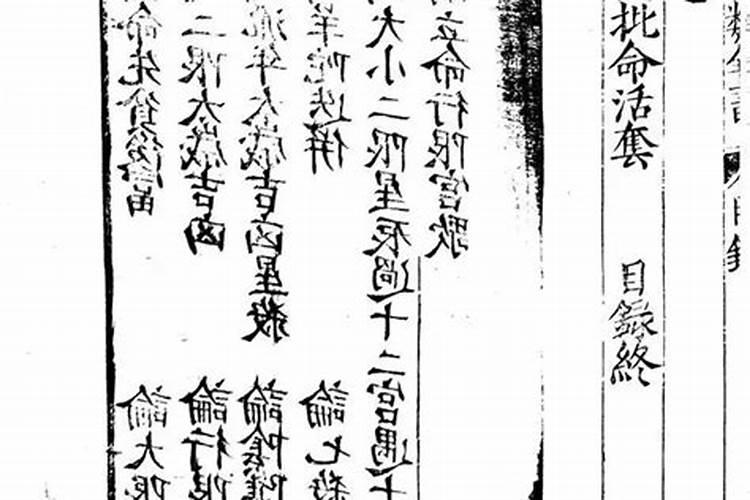 批命活套 目錄終
立命行限宮歌
大小二限星辰過十二宮遇十
羊陀迭併 論七殺
流年太歲吉凶星殺 論陰騭
二限太歲吉凶 論行限
命先貧後富 論大限